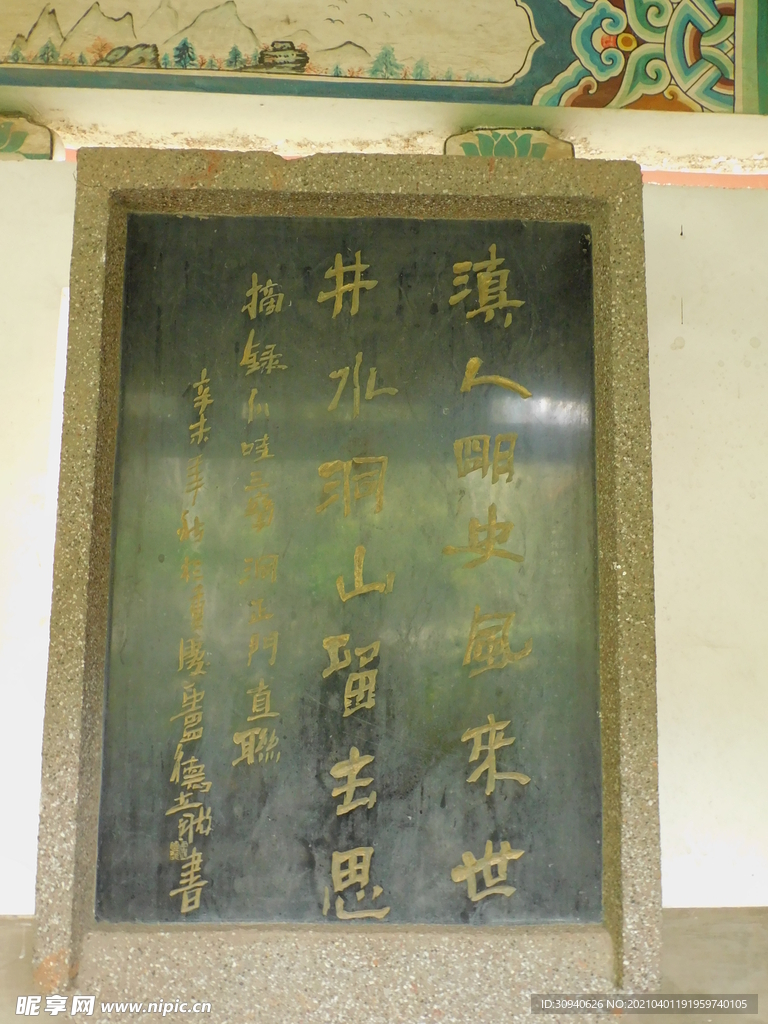 滇人朙史風來世
井水洞山畱去思
摘録仁哇三窟洞正門直聯
辛未年秋於重慶盧德
書
昵享网 www.nipic.cn
ID:30940626 NO:20210401191959740105